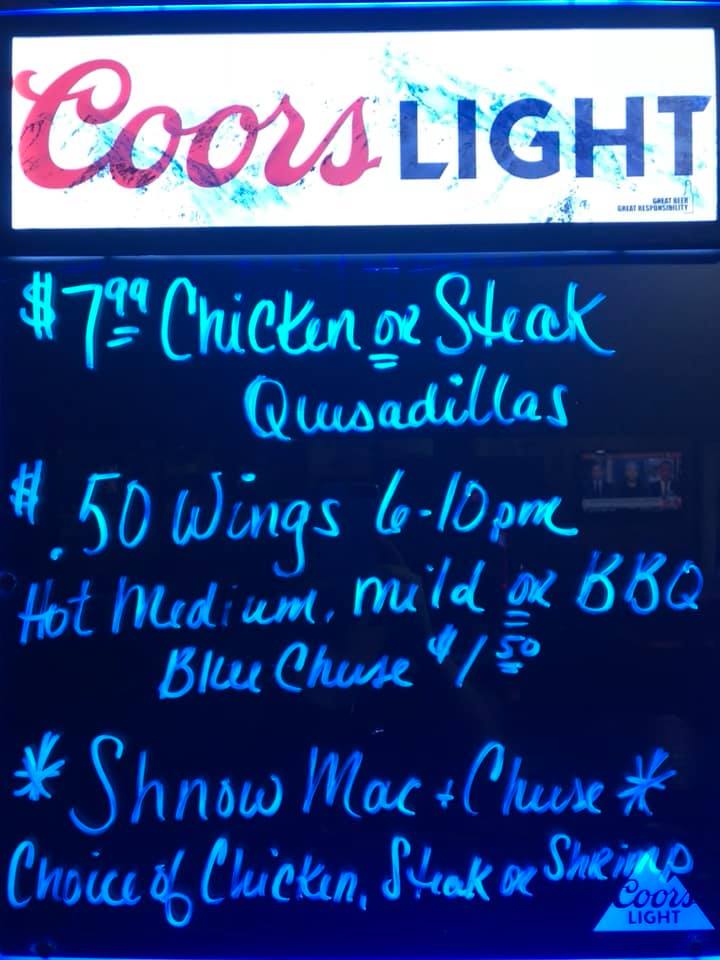 Coors LIGHT
GREAT BEER
GREAT RESPONSIBILITY
$7.99 Chicken or Steak
Quesadillas
$.50 Wings 6-10pm
Hot Medium, mild or BBQ
Blue Cheese $1.50
*Shnow Mac + Cheese*
Choice of Chicken, Steak or Shrimp
Coors
LIGHT